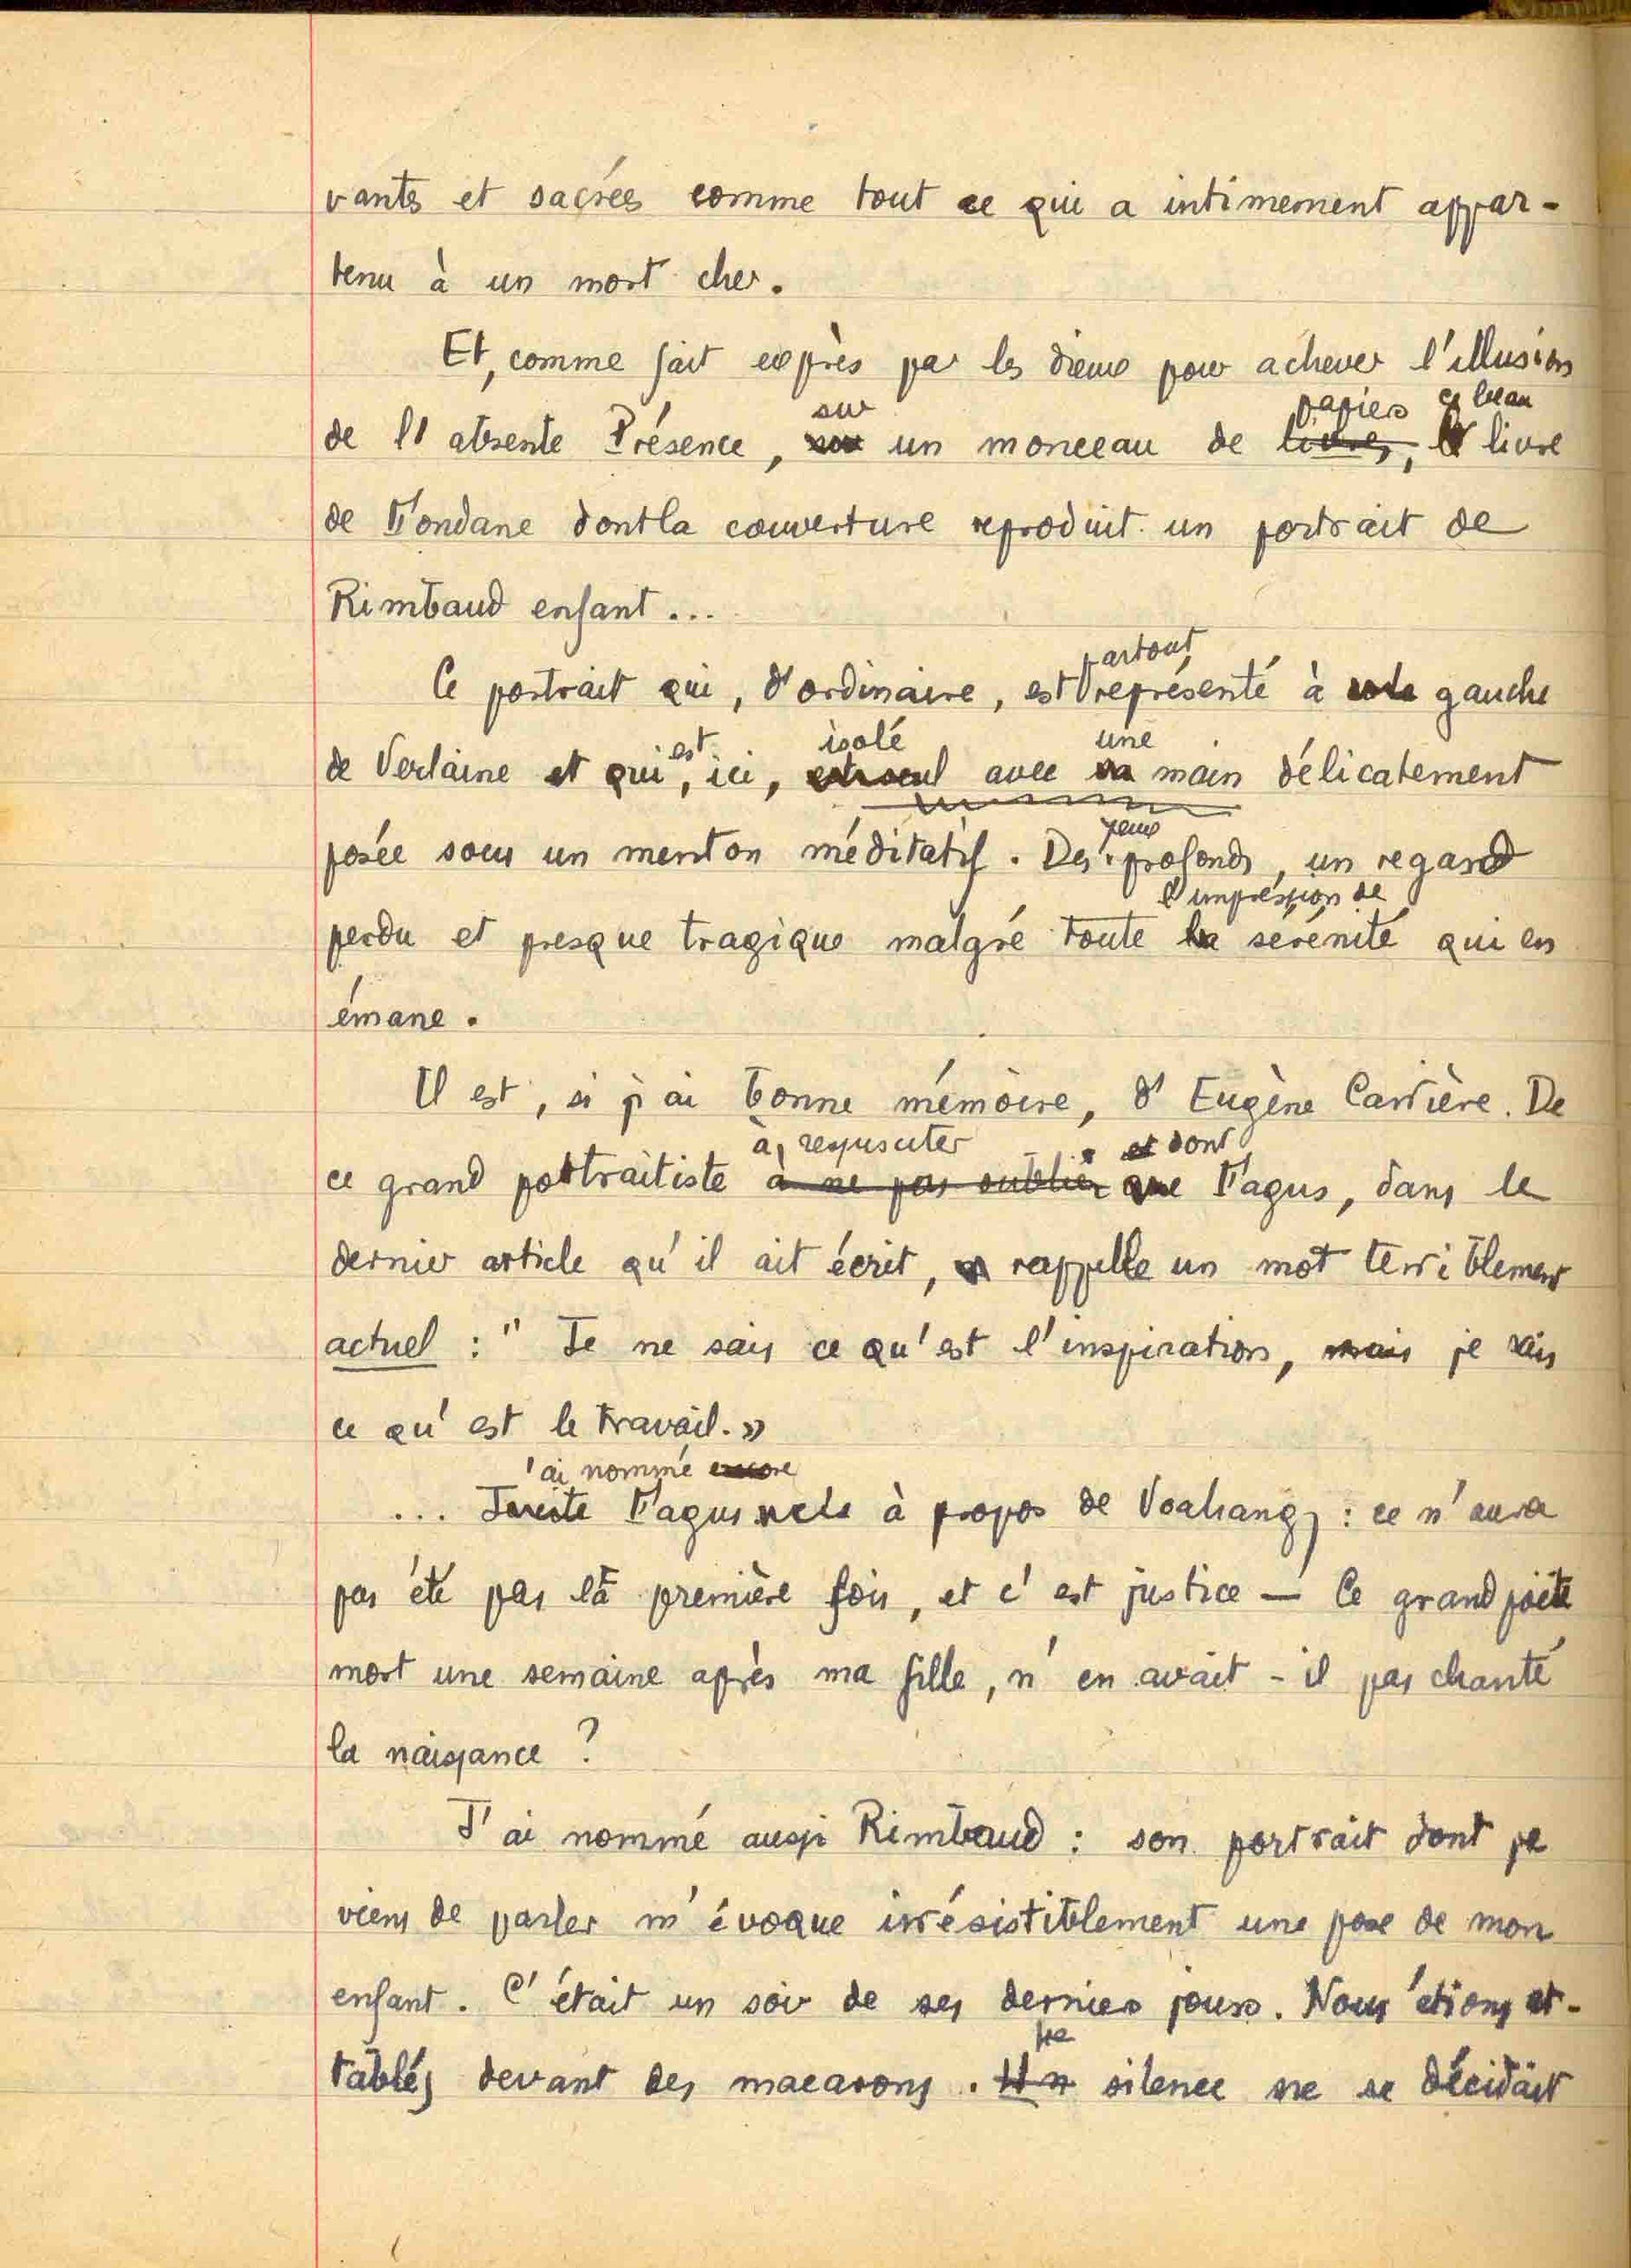 vantes et sacrées comme tout ce qui a intimement appar-
tenu à un mort cher.
Et, comme fait exprès par les dieux pour achever l'illusion
sur papiers ce beau
de l'absente Présence, un monceau de livres, livre
de Fondane dont la couverture reproduit un portrait de
Rimbaud enfant...
partout
Ce portrait qui, d'ordinaire, est représenté à gauche
est isolé une
de Verlaine et qui, ici, est seul avec sa main délicatement
yeux
posée sous un menton méditatif. Des profonds, un regard
l'impression de
perdu et presque tragique malgré toute la sérénité qui en
émane.
Il est, si j'ai bonne mémoire, d'Eugène Carrière. De
à ressusciter et dont
ce grand portraitiste à ne pas oublier que Fagus, dans le
dernier article qu'il ait écrit, rappelle un mot terriblement
actuel : " Je ne sais ce qu'est l'inspiration, mais je sais
ce qu'est le travail. »
'ai nommé encore
... Je cite Fagus à propos de Voahangy : ce n'aura
pas été pas la première fois, et c'est justice — Ce grand poète
mort une semaine après ma fille, n'en avait-il pas chanté
la naissance ?
J'ai nommé aussi Rimbaud : son portrait dont je
viens de parler m'évoque irrésistiblement une pose de mon
enfant. C'était un soir de ses derniers jours. Nous étions at-
le
tablés devant des macarons. Un silence ne se décidait